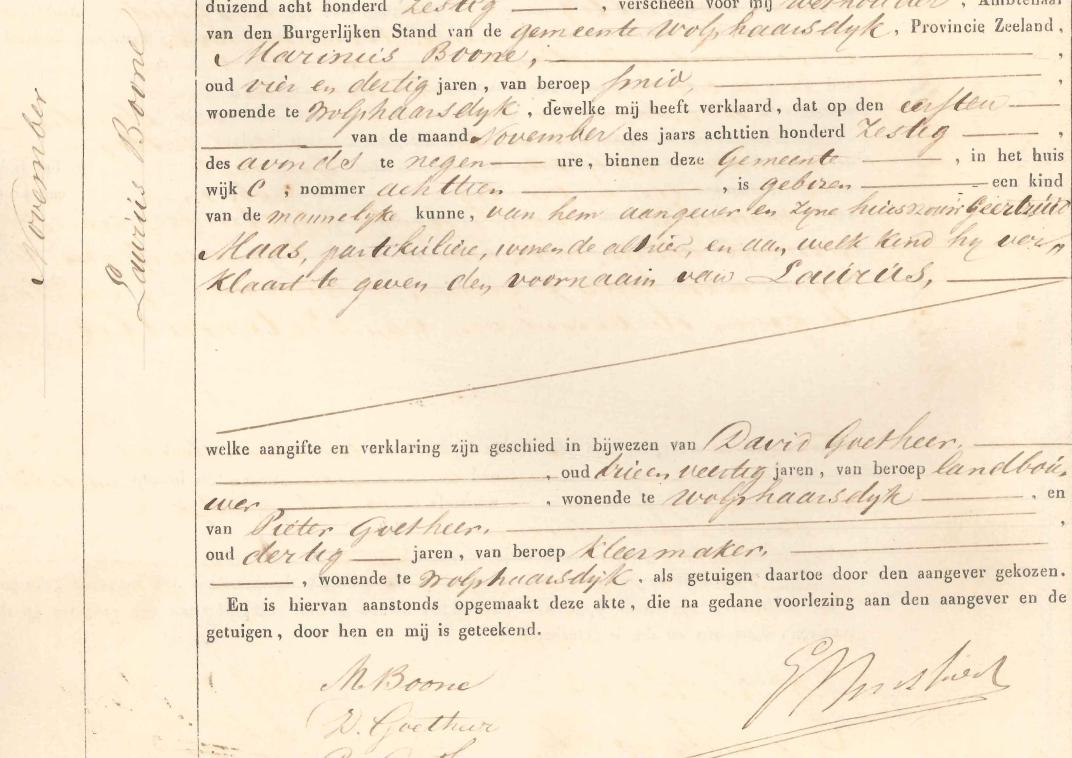 November
Laurus Boone
duizend acht honderd Zestig, verscheen voor mij Wethouder, Ambtenaar
van den Burgerlijken Stand van de gemeente Wolphaarsdyk, Provincie Zeeland,
Marinus Boone,
oud vier en dertig jaren, van beroep smid,
wonende te Wolphaarsdyk, dewelke mij heeft verklaard, dat op den eersten
van de maand November des jaars achttien honderd Zestig,
des avonds te negen ure, binnen deze Gemeente, in het huis
wijk C, nommer achttien, is geboren een kind
van de mannelyke kunne, van hem aangever en zyne huisvrouw Geertruid
Maas, partikuliere, wonende alhier, en aan welk kind hy ver„
klaart te geven den voornaam van Laurus,
welke aangifte en verklaring zijn geschied in bijwezen van David Goetheer,
, oud drie en veertig jaren, van beroep landbou„
wer, wonende te Wolphaarsdyk, en
van Pieter Goetheer,
oud dertig jaren, van beroep kleermaker,
, wonende te Wolphaarsdyk, als getuigen daartoe door den aangever gekozen.
En is hiervan aanstonds opgemaakt deze akte, die na gedane voorlezing aan den aangever en de
getuigen, door hen en mij is geteekend.
M. Boone
D. Goetheer